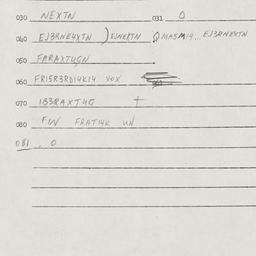 030 NEXTN 031 0
040 EJ3RNEXTN ) EJNEXTN MASM14... EJ3RNEXTN
050 FARAXTUGN
060 FRISR3RD14K14 VOX
070 183RAXTUG +
080 FIN FRATI4K UN
081 . 0